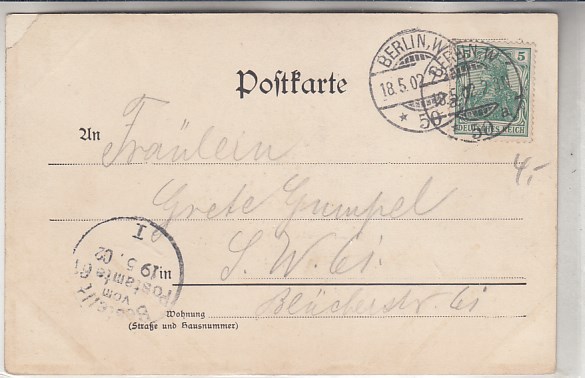 BERLIN, W.
18.5.02
* 50
BERLIN, W
18.5.02
50 a.
5
DEUTSCHES REICH
Postkarte
An Fräulein
4,-
Grete Gumpel
in S. W. 61.
Blücherstr. 61
Wohnung
(Straße und Hausnummer)
Bestellt
vom
Postamte 61
19 5. 02
I